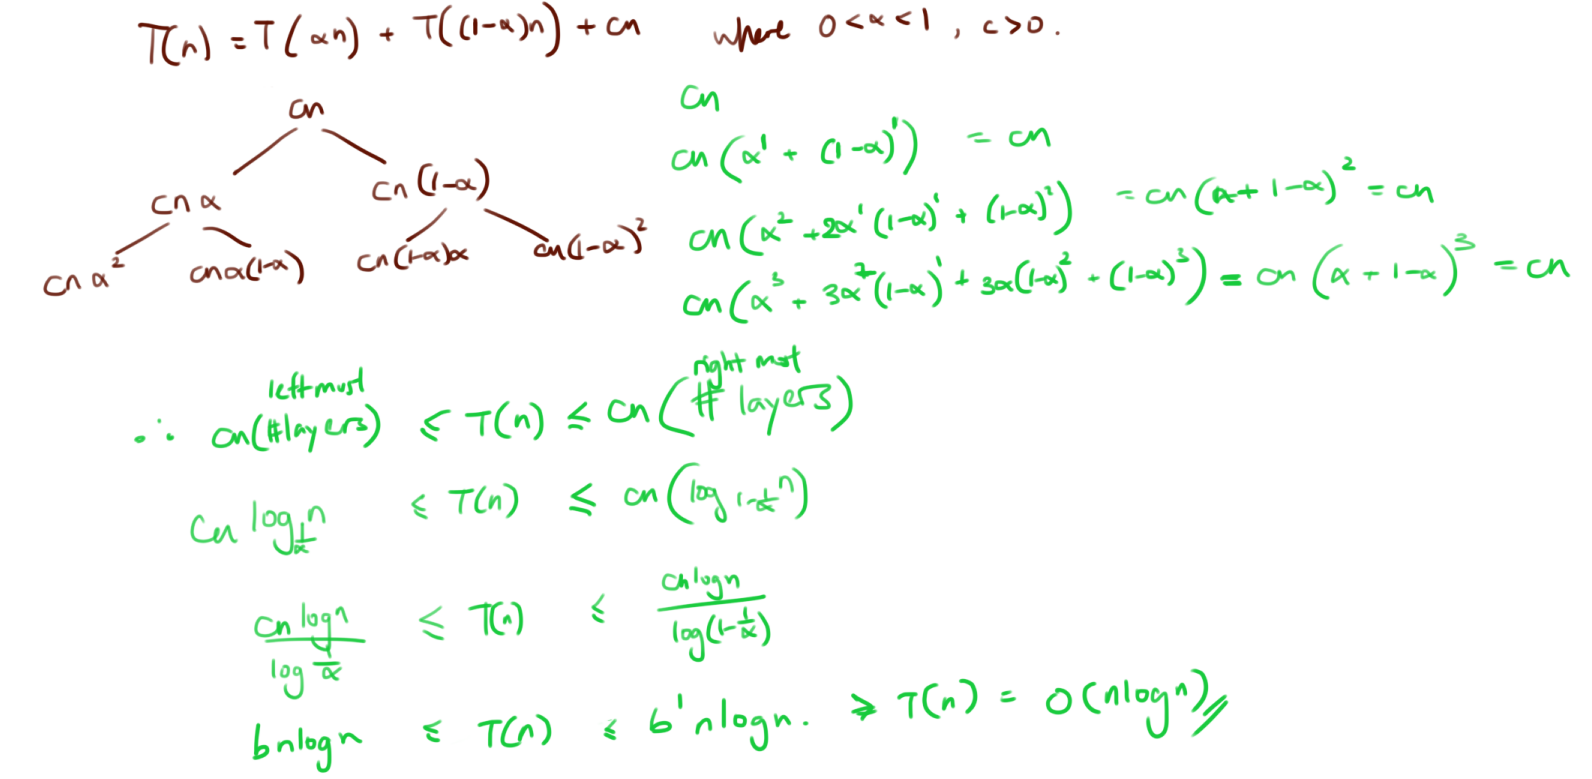 T(n) = T(αn) + T((1-α)n) + cn where 0<α<1, c>0.
cn
cnα cn(1-α)
cnα² cnα(1-α) cn(1-α)α cn(1-α)²
cn
cn(α¹ + (1-α)¹) = cn
cn(α² + 2α¹(1-α)¹ + (1-α)²) = cn(α + 1-α)² = cn
cn(α³ + 3α²(1-α)¹ + 3α(1-α)² + (1-α)³) = cn(α + 1-α)³ = cn
leftmost right most
∴ cn(#layers) ≤ T(n) ≤ cn(# layers)
cn log_{1/α} n ≤ T(n) ≤ cn(log_{1-1/α} n)
cn logn / log 1/α ≤ T(n) ≤ cn logn / log(1-1/α)
bnlogn ≤ T(n) ≤ b'nlogn. ⇒ T(n) = O(nlogn)